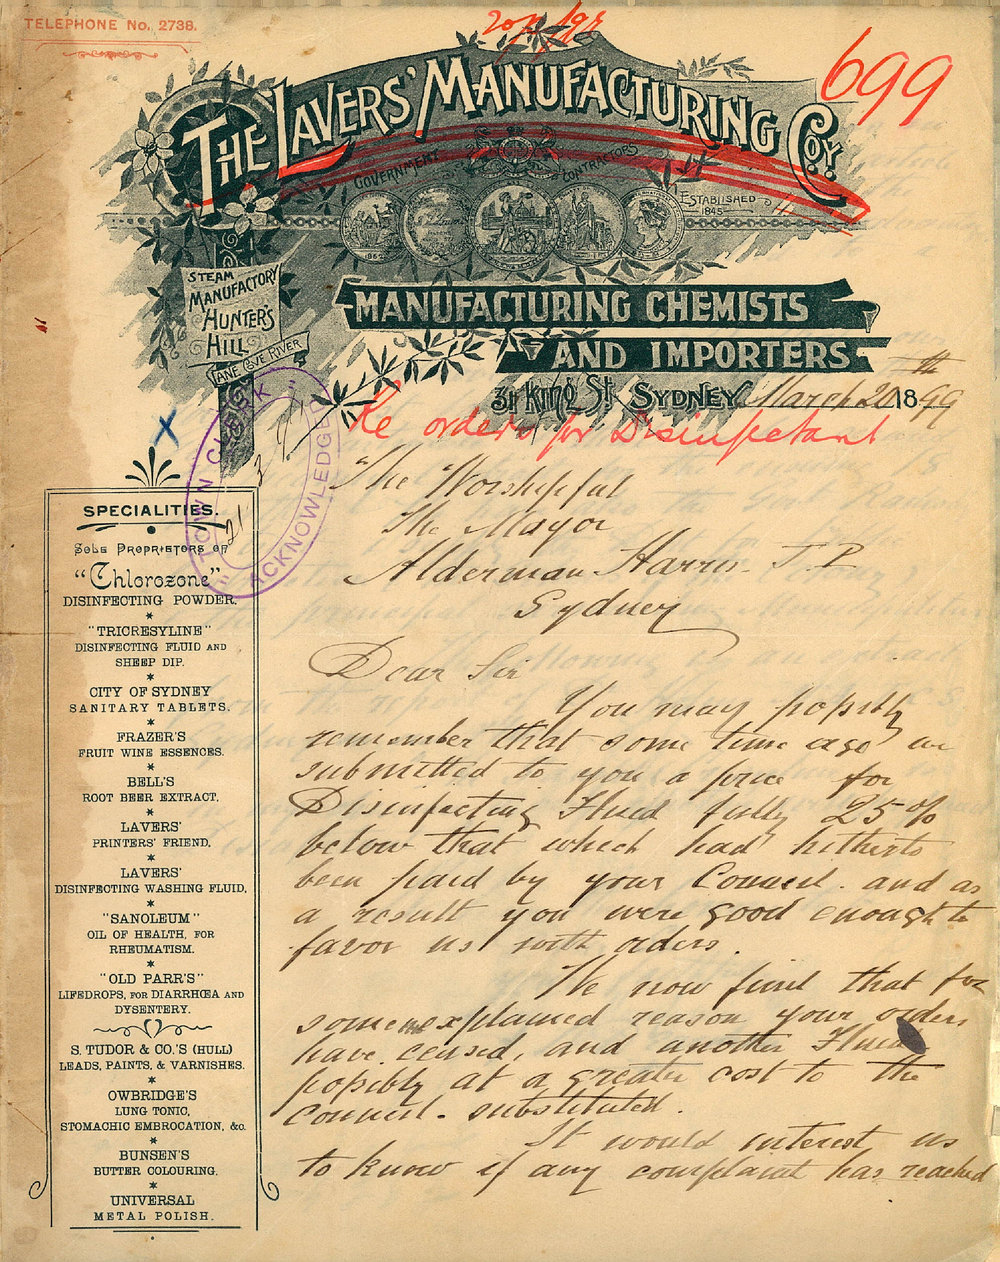 TELEPHONE No. 2738.
699
THE LAVERS' MANUFACTURING COY.
GOVERNMENT CONTRACTORS
ESTABLISHED
1845
STEAM
MANUFACTORY
HUNTER'S
HILL
LANE COVE RIVER
MANUFACTURING CHEMISTS
AND IMPORTERS
31 King St. SYDNEY March 20th 1899
Re orders for Disinfectant
"TOWN CLERK"
ACKNOWLEDGED
21/3/
The Worshipful
The Mayor
Alderman Harris J.P.
Sydney
Dear Sir
You may possibly
remember that some time ago we
submitted to you a price for
Disinfecting Fluid fully 25%
below that which had hitherto
been paid by your Council. and as
a result you were good enough to
favor us with orders.
We now find that for
some unexplained reason your orders
have ceased, and another Fluid
possibly at a greater cost to the
Council - substituted.
It would interest us
to know if any complaint has reached
SPECIALITIES.
SOLE PROPRIETORS OF
"Chlorozone"
DISINFECTING POWDER.
"TRICRESYLINE"
DISINFECTING FLUID AND
SHEEP DIP.
CITY OF SYDNEY
SANITARY TABLETS.
FRAZER'S
FRUIT WINE ESSENCES.
BELL'S
ROOT BEER EXTRACT.
LAVERS'
PRINTERS' FRIEND.
LAVERS'
DISINFECTING WASHING FLUID.
"SANOLEUM"
OIL OF HEALTH, FOR
RHEUMATISM.
"OLD PARR'S"
LIFEDROPS, FOR DIARRHŒA AND
DYSENTERY.
S. TUDOR & CO.'S (HULL)
LEADS, PAINTS, & VARNISHES.
OWBRIDGE'S
LUNG TONIC,
STOMACHIC EMBROCATION, &c.
BUNSEN'S
BUTTER COLOURING.
UNIVERSAL
METAL POLISH.